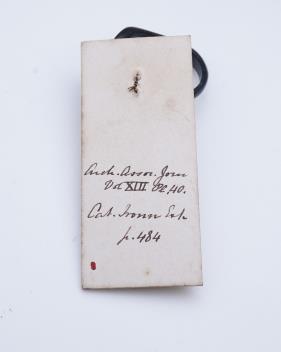 Arch. Assoc. Jour
Vol XIII Pl. 40.
Cat. Ironm Exh
p. 484